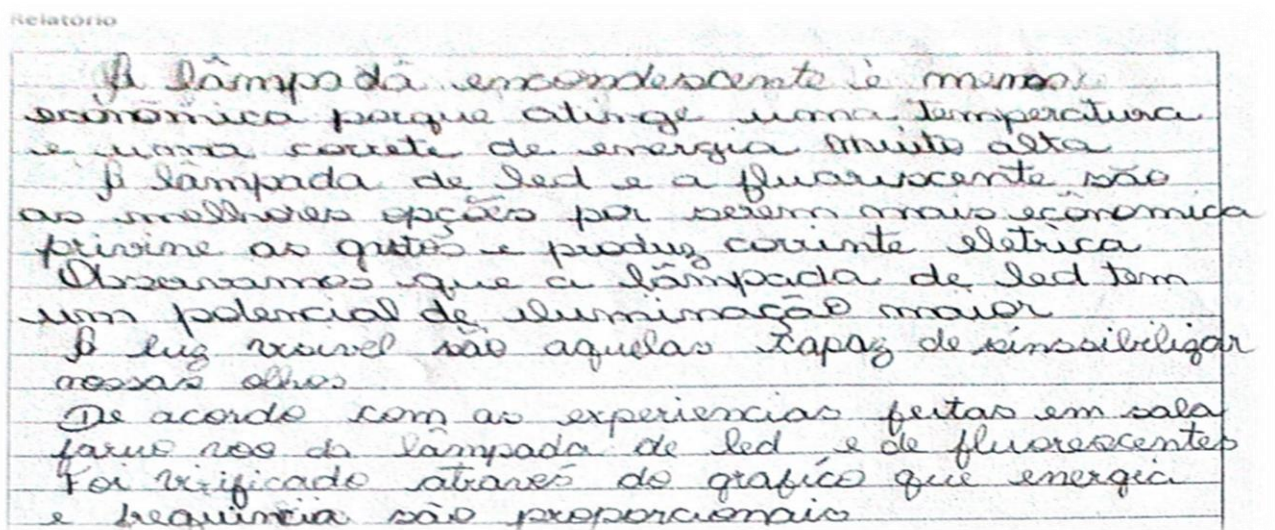 Relatório
A lâmpada encondescente è menos
econômica porque atinge uma temperatura
e uma correte de energia muito alta
A lâmpada de led e a fluariscente são
as melhores opções por serem mais econômica
privine as gastos e produz corrinte eletrica
Observamos que a lâmpada de led tem
um potencial de iluminação maior
A luz visivel são aquelas capaz de sinssibilizar
nossas olhos
De acordo com as experiencias feitas em sala
da lâmpada de led e de fluorescentes
Foi virificado através do grafico que energia
e frequincia são proporcionais